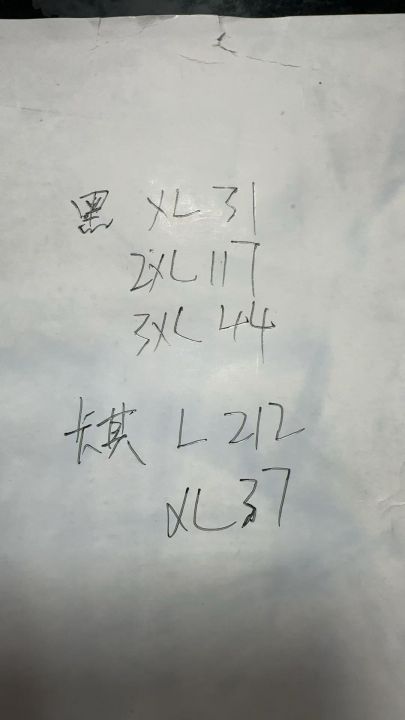 黑 XL 31
2XL 117
3XL 44
卡其 L 212
XL 37